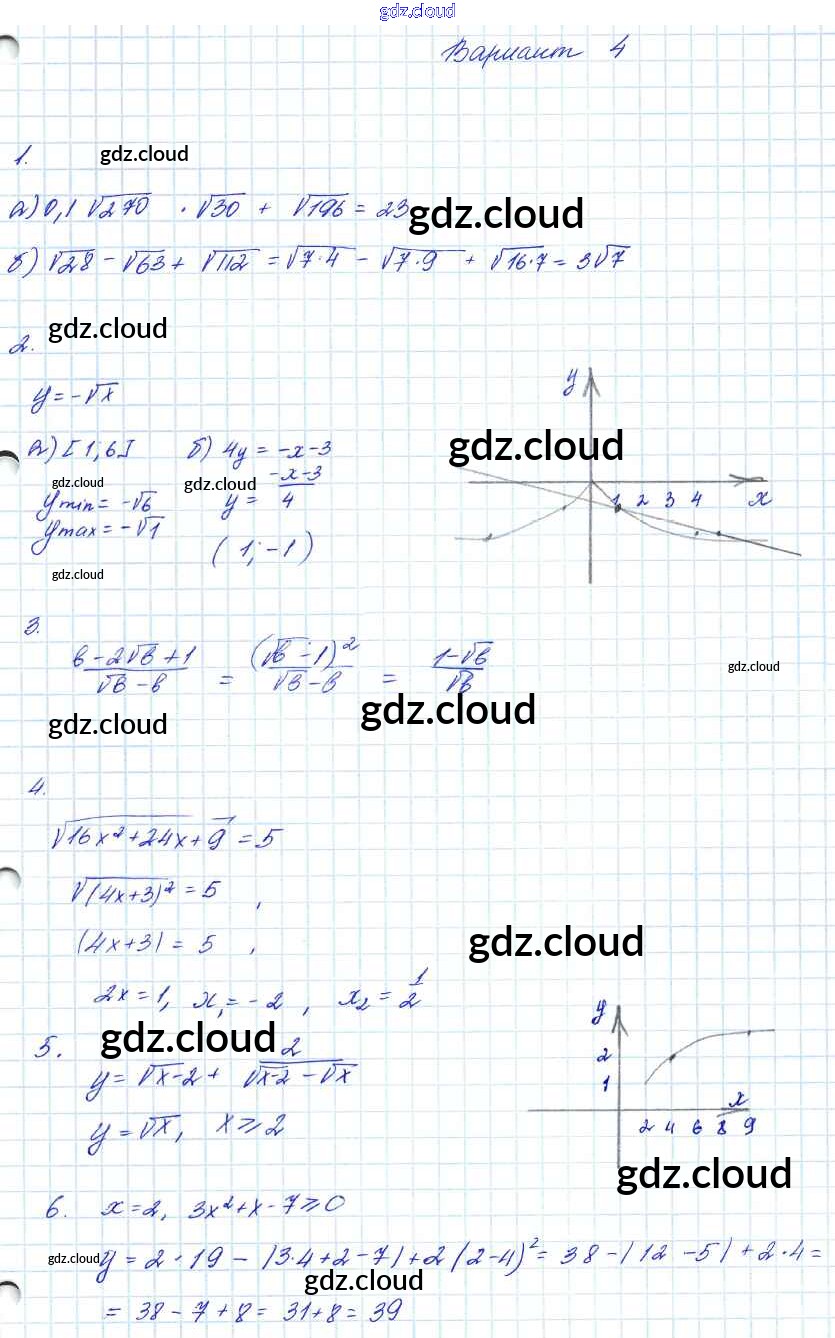 gdz.cloud
Вариант 4
1. gdz.cloud
а) 0,1 √270 · √30 + √196 = 23
gdz.cloud
б) √28 - √63 + √112 = √7·4 - √7·9 + √16·7 = 3√7
gdz.cloud
2.
y = -√x
а) [1; 6] б) 4y = -x-3
gdz.cloud
gdz.cloud
gdz.cloud
ymin = -√6 y = (-x-3)/4
ymax = -√1 (1; -1)
gdz.cloud
y
1 2 3 4 x
3.
(в - 2√в + 1)/(√в - в) = (√в - 1)²/(√в - в) = (1-√в)/√в
gdz.cloud
gdz.cloud
gdz.cloud
4.
√16x²+24x+9 = 5
√(4x+3)² = 5 ,
(4x+3) = 5 ,
gdz.cloud
2x = 1, x₁ = -2 , x₂ = 1/2
5. gdz.cloud
y = √x-2 + 2/(√x-2 - √x)
y = √x, x ⩾ 2
y
2
1
x
2 4 6 8 9
gdz.cloud
6. x = 2, 3x²+x-7 ⩾ 0
gdz.cloud
y = 2·19 - |3·4+2-7| + 2(2-4)² = 38 - |12-5| + 2·4 =
gdz.cloud
= 38 - 7 + 8 = 31+8 = 39